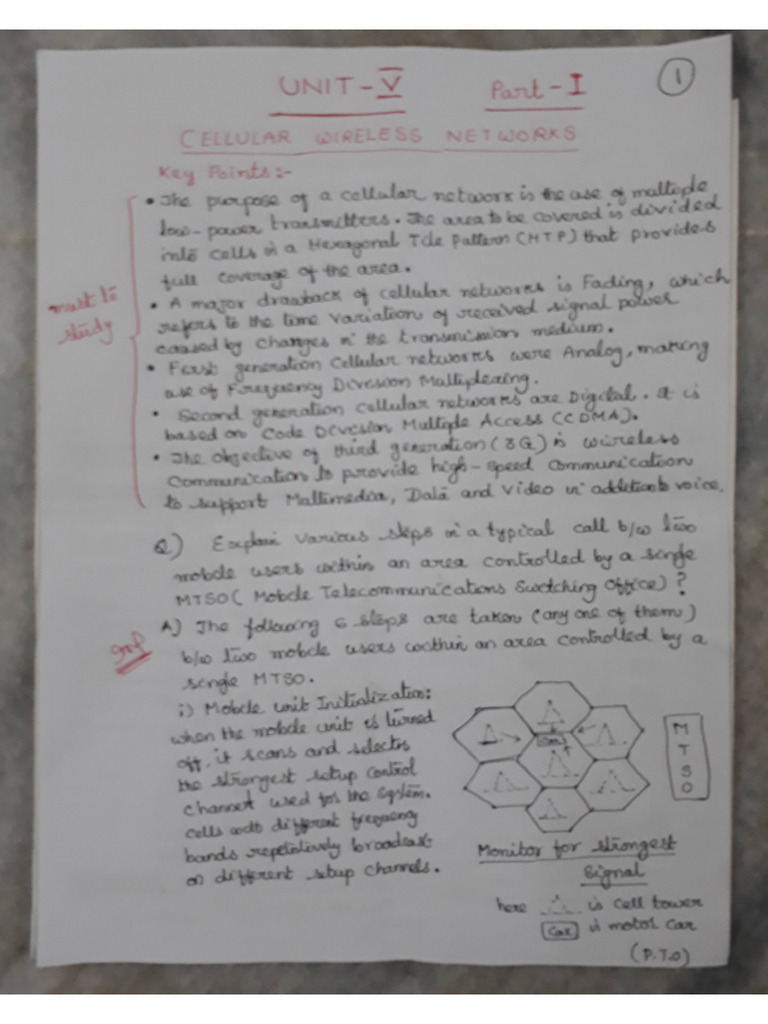 1
UNIT-V Part-I
CELLULAR WIRELESS NETWORKS
Key Points:-
must to
study
• The purpose of a cellular network is the use of multiple
low-power transmitters. The area to be covered is divided
into cells in a Hexagonal Tile Pattern (HTP) that provides
full coverage of the area.
• A major drawback of cellular networks is Fading, which
refers to the time variation of received signal power
caused by changes in the transmission medium.
• First generation Cellular networks were Analog, making
use of Frequency Division Multiplexing.
• Second generation Cellular networks are Digital. It is
based on Code Division Multiple Access (CDMA).
• The objective of third generation (3G) is wireless
Communication to provide high-speed communication
to support Multimedia, Data and Video in addition to voice.
Q) Explain various steps in a typical call b/w two
mobile users within an area controlled by a single
MTSO (Mobile Telecommunications Switching Office)?
A) The following 6 steps are taken (any one of them)
b/w two mobile users within an area controlled by a
single MTSO.
i) Mobile unit Initialization:
when the mobile unit is turned
off, it scans and selects
the strongest setup control
channel used for the system.
cells with different frequency
bands repetitively broadcast
on different setup channels.
Car
M
T
S
O
Monitor for strongest
Signal
here is cell tower
Car is motor car
(P.T.O)